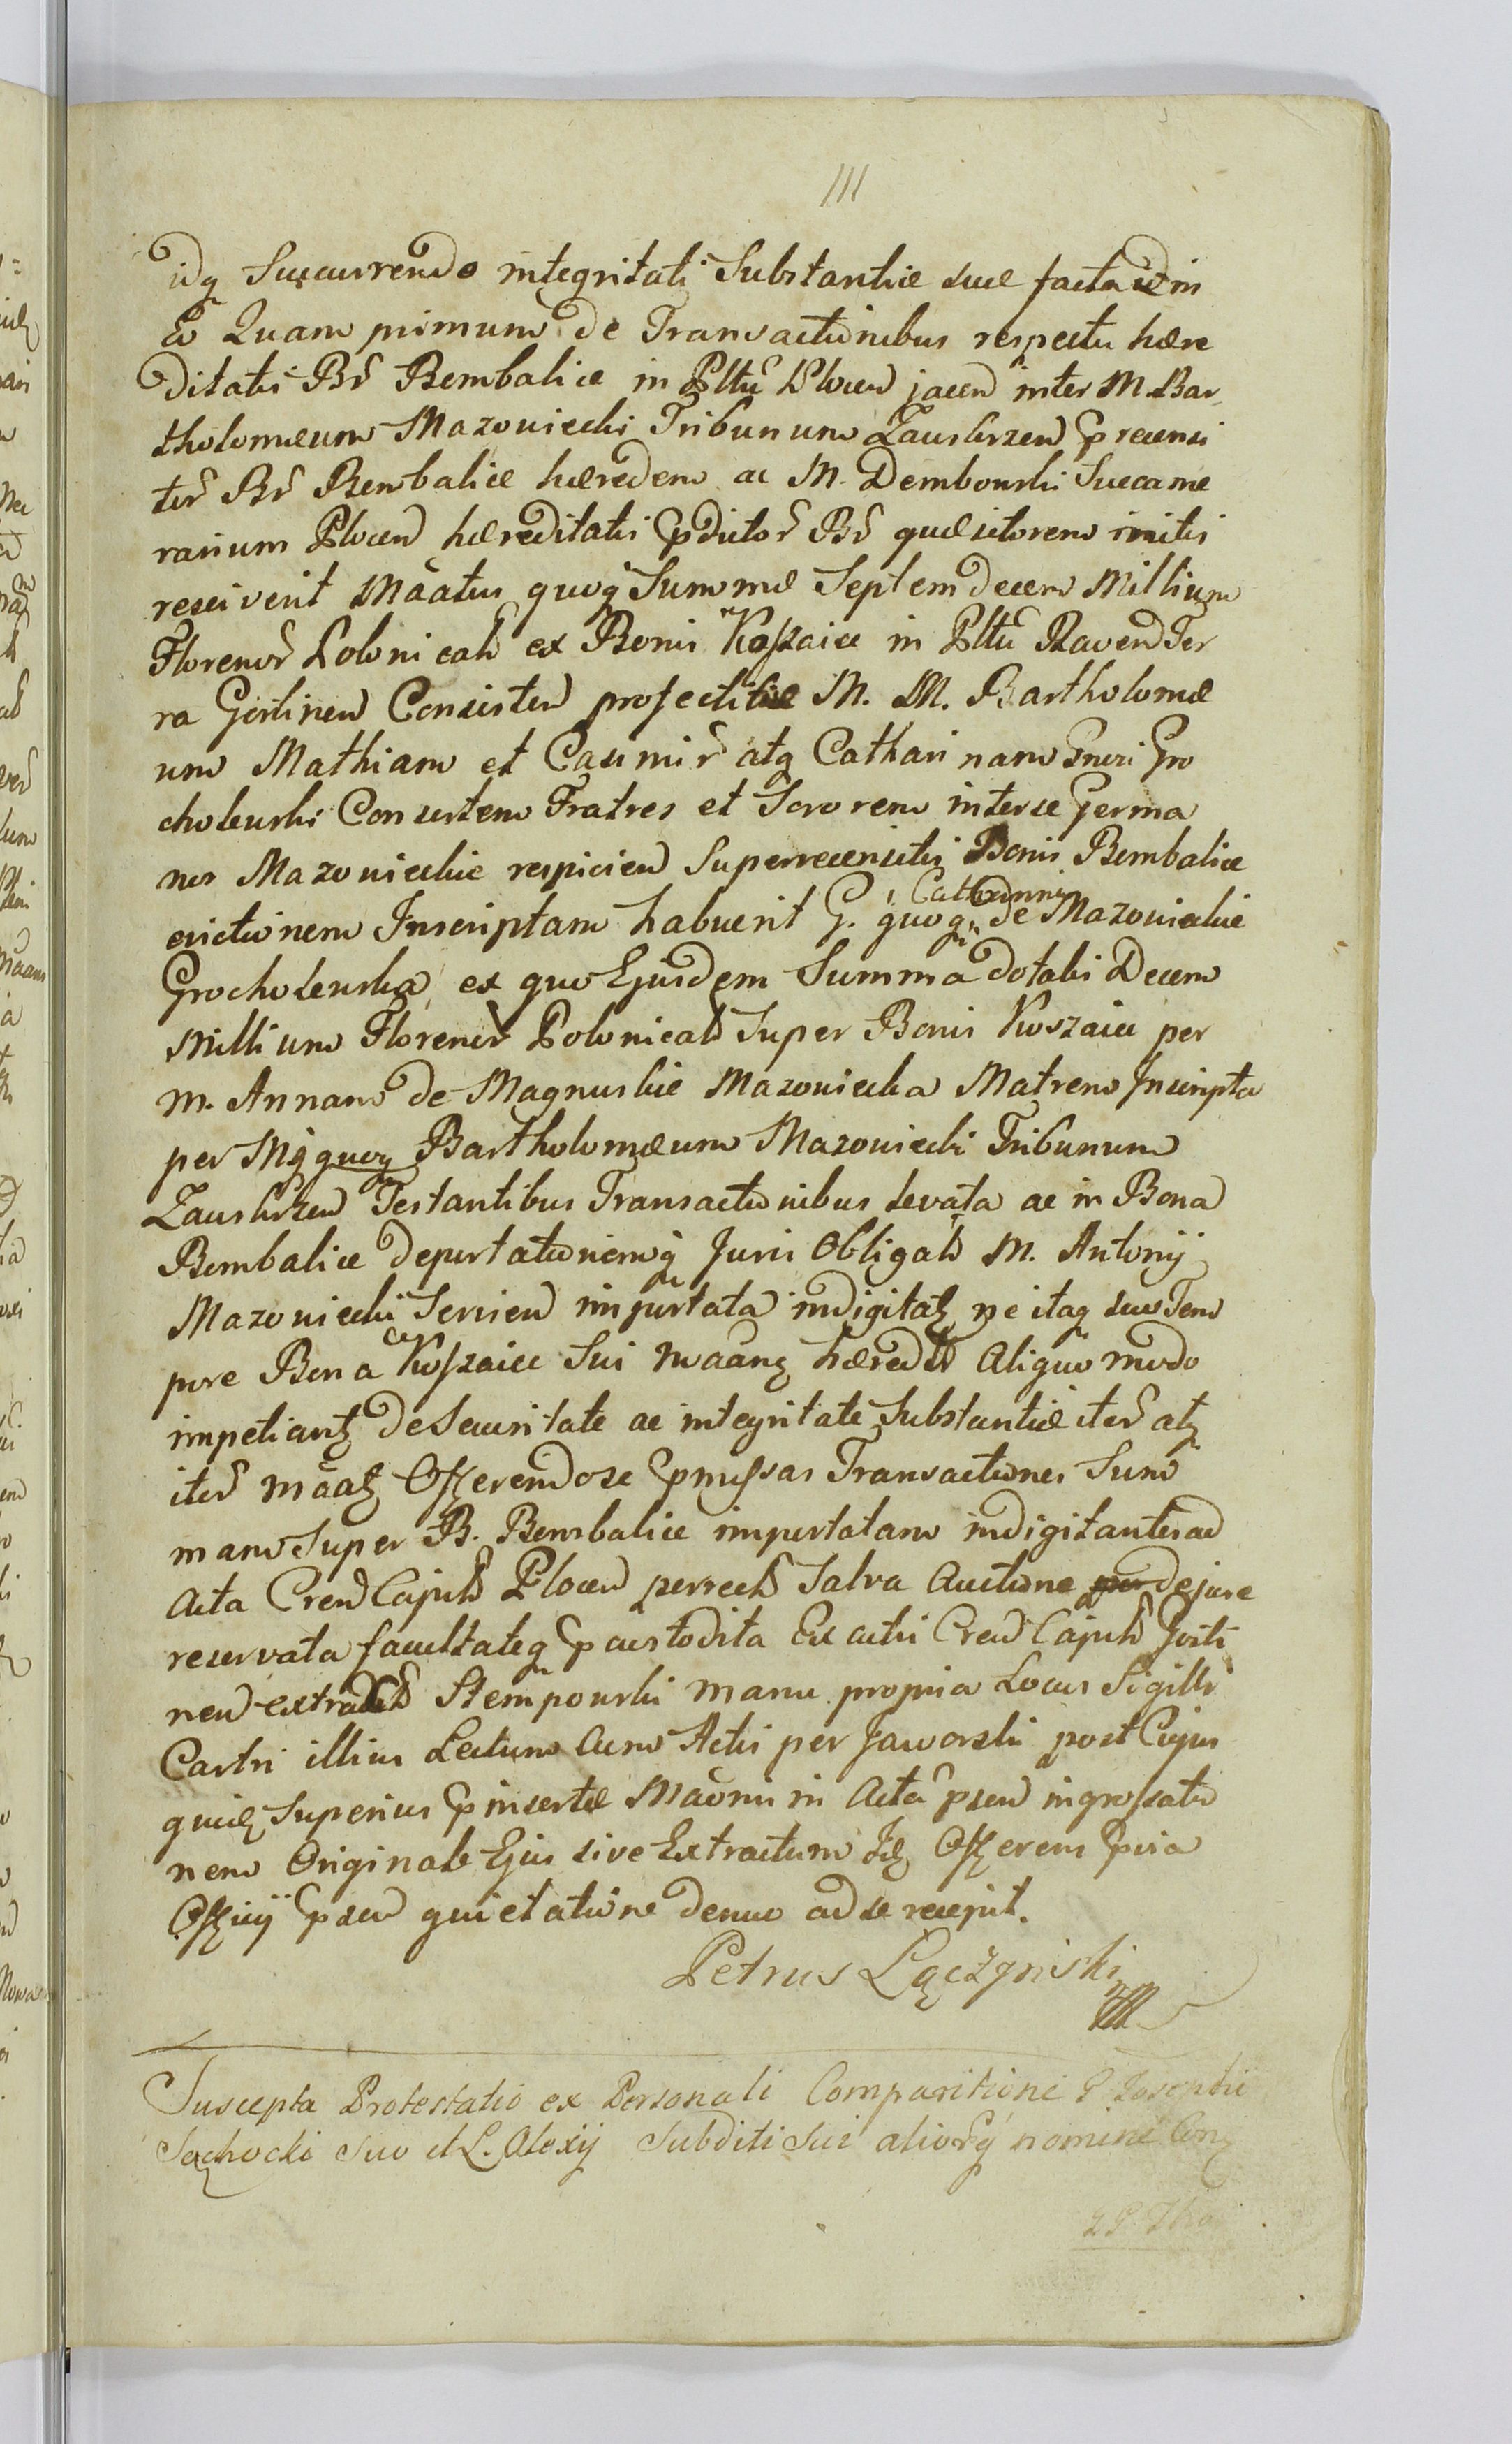 111
idq Succurrendo integritati Substantiæ suæ facta id in
Eo Quam primum de Transactionibus respectu hære
ditatis Br̃ Bembalice in Pltũ Plocen jacen inter M. Bar
tholomæum Mazowiecki Tribunum Zauskrzen præcensi
tor̃ Br̃ Bembalice hæredem ac M. Dembowski Succame
rarium Plocen hæreditatis pdictor̃ Br̃ quæsitorem initis
resciverit Mãatus quoq Summæ Septemdecem Millium
Florenor̃ Polonicals ex Bonis Koszaice in Pltũ Raven Ter
ra Gostinen Consisten profectitiæ M. M. Bartholomæ
um Mathiam et Casimir̃ atq Catharinam Gnrsi Gro
cholewski Consortem Fratres et Sororem interse Germa
nos Mazowieckie respicien Superrecensitis Bonis Bembalice
evictionem Inscriptam habuerit G. quoq Catharinna de Mazowieckie
Grocholewska ex quo Ejusdem Summa dotali Decem
Millium Florenor̃ Polonicals Super Bonis Koszaice per
M. Annam de Magnuskie Mazowiecka Matrem Inscripta
per Mg quoq Bartholomæum Mazowiecki Tribunum
Zauskrzen Testantibus Transactionibus levata ac in Bona
Bembalice deportationemq Juris Obligats M. Antonij
Mazowiecki Servien importata indigitatz ne itaq suo Tem
pore Bona Koszaice Sui mãang hæredits Aliquo modo
impetiantz de Securitate ac integritate Substantiæ iter̃ atz
iter̃ mãatz Offerendose pmissas Transactiones Sum̃
mam Super B. Bembalice importatam indigitantes ad
Acta Cren Capitls Plocen perrects Salva Auctione de jure
reservata facultateq pcustodita Ex actis Cren Capitls Gosti
nen extradits Stempowski manu propria Locus Sigilli
Castri illius Lectum Cum Actis per Jaworski post Cujus
quidz Superius pinsertæ Mãonis in Acta psen ingrossatio
nem Originale Ejus sive Extractum Idz Offerens psia
Officij psen quietatione denuo ad se recepit.
Petrus Łączyński
Suscepta Protestatio ex Personali Comparitione G Josephi
Sochocki suo et L. Alexij Subditi Sui alior̃q nomine Con